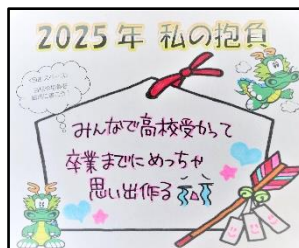 2025年 私の抱負
みんなで高校受かって
卒業までにめっちゃ
思い出作る